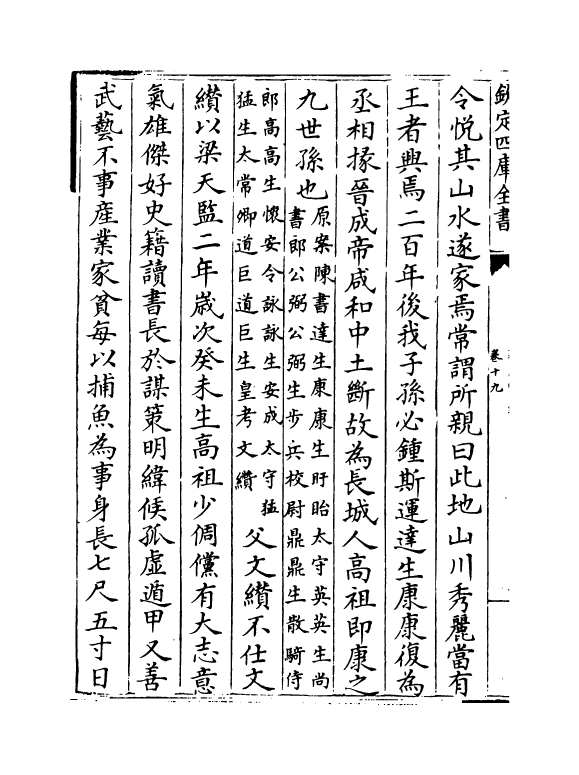 欽定四庫全書
卷十九
令悅其山水遂家焉常謂所親曰此地山川秀麗當有
王者興焉二百年後我子孫必鍾斯運達生康康復為
丞相掾晉成帝咸和中土斷故為長城人高祖即康之
九世孫也原案陳書達生康康生盱眙太守英英生尚
書郎公弼公弼生步兵校尉鼎鼎生散騎侍
郎高高生懷安令詠詠生安成太守猛
猛生太常卿道巨道巨生皇考文纘父文纘不仕文
纘以梁天監二年歳次癸未生高祖少倜儻有大志意
氣雄傑好史籍讀書長於謀策明緯候孤虛遁甲又善
武藝不事産業家貧每以捕魚為事身長七尺五寸日